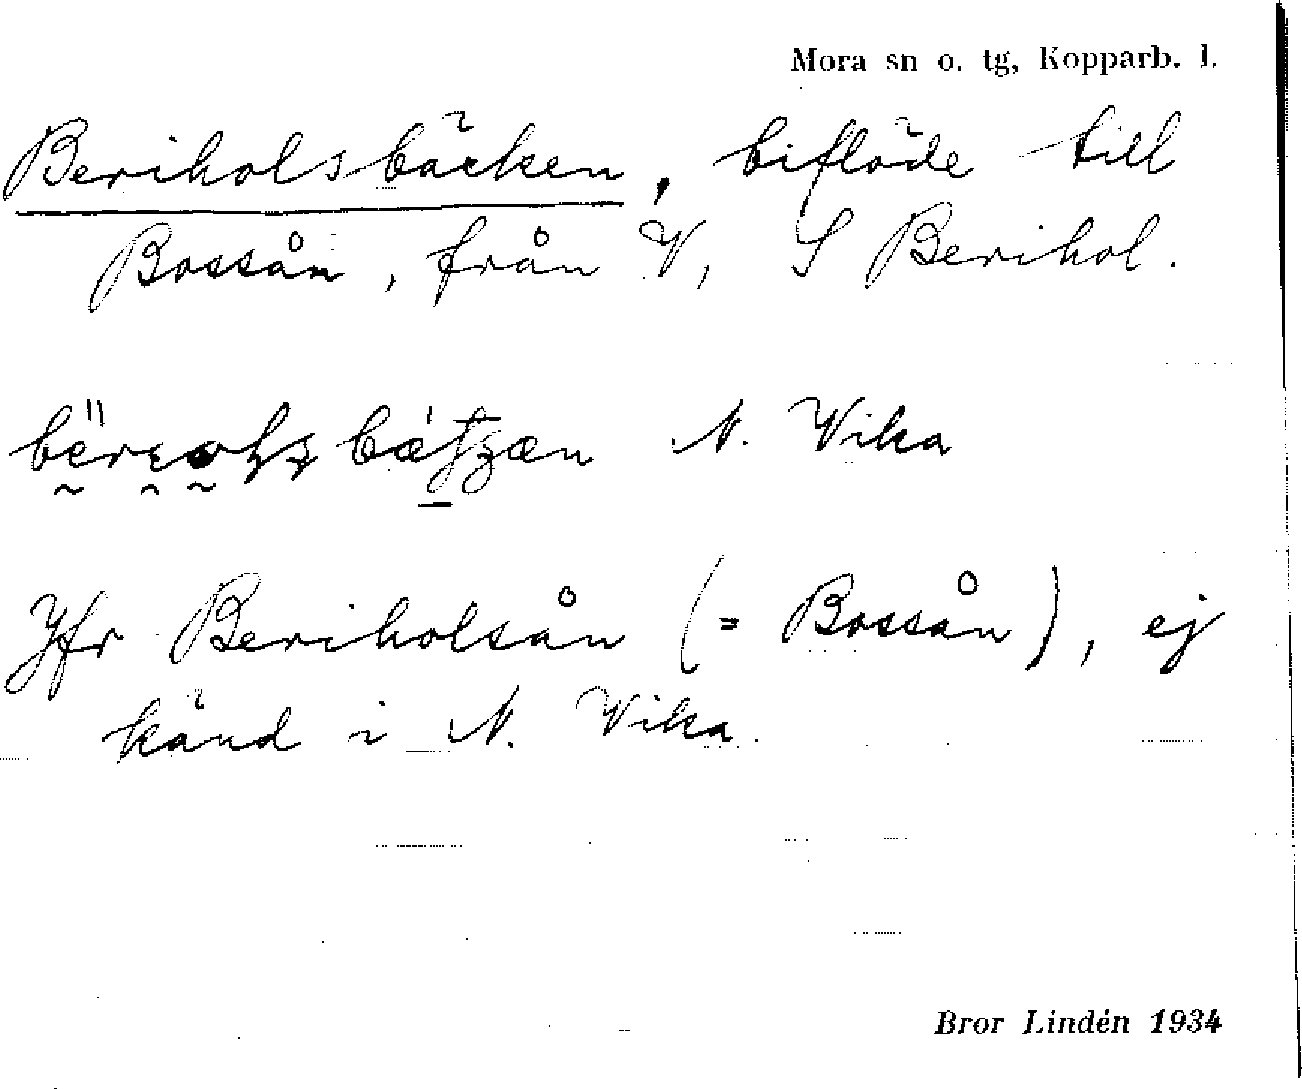 Mora sn o. tg, Kopparb. l.
Beriholsbäcken, biflöde till
Bossån, från V, S Berihol.
N. Vika
Jfr Beriholsån (= Bossån), ej
känd i N. Vika.
Bror Lindén 1934